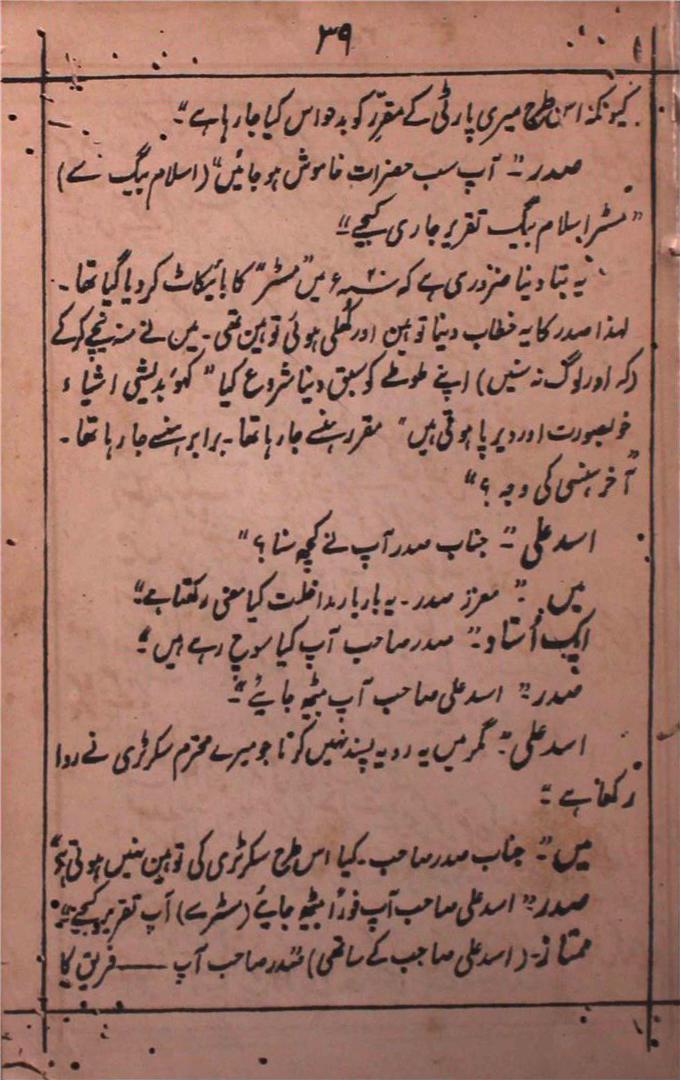 ۳۹
کیونکہ اس طرح میری پارٹی کے مقرّر کو بدحواس کیا جا رہا ہے“۔
صدر ”۔ آپ سب حضرات خاموش ہو جائیں“ (اسلام بیگ سے)
”مسٹر اسلام بیگ تقریر جاری کیجیے“
یہ بتا دینا ضروری ہے کہ ۲۰ء میں ”مسٹر“ کا بائیکاٹ کر دیا گیا تھا۔
لہذا صدر کا یہ خطاب دینا توہین اور کُھلی ہوئی توہین تھی۔ میں نے منہ نیچے کر کے
(کہ اور لوگ نہ سنیں) اپنے طوطے کو سبق دینا شروع کیا ”کہو بدیشی اشیاء
خوبصورت اور دیرپا ہوتی ہیں“ مقرر ہنسے جا رہا تھا۔ برابر ہنسے جا رہا تھا۔
”آخر ہنسی کی وجہ؟“
اسد علی ”۔ جناب صدر آپ نے کچھ سنا؟“
میں ”۔ معزز صدر۔ یہ بار بار مداخلت کیا معنی رکھتا ہے“
ایک اُستاد ”۔ صدر صاحب آپ کیا سوچ رہے ہیں“
صدر ”۔ اسد علی صاحب آپ بیٹھ جایئے“۔
اسد علی ”۔ مگر میں یہ رویہ پسند نہیں کرتا جو میرے محترم سکرٹری نے روا
رکھا ہے“
میں ”۔ جناب صدر صاحب۔ کیا اس طرح سکرٹری کی توہین نہیں ہوتی؟“
صدر ”۔ اسد علی صاحب آپ فوراً بیٹھ جایئے (مسٹر سے) آپ تقریر کیجیے“
ممتاز۔ (اسد علی صاحب کے ساتھی) ”صدر صاحب آپ —— فریق کا